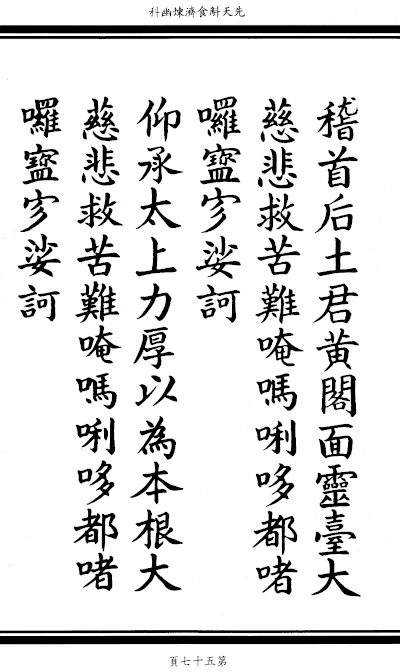 先天斛食濟煉幽科
稽首后土君黃閣面靈臺大
慈悲救苦難唵嗎唎哆都啫
囉𥁞穸娑訶
仰承太上力厚以為本根大
慈悲救苦難唵嗎唎哆都啫
囉𥁞穸娑訶
第五十七頁